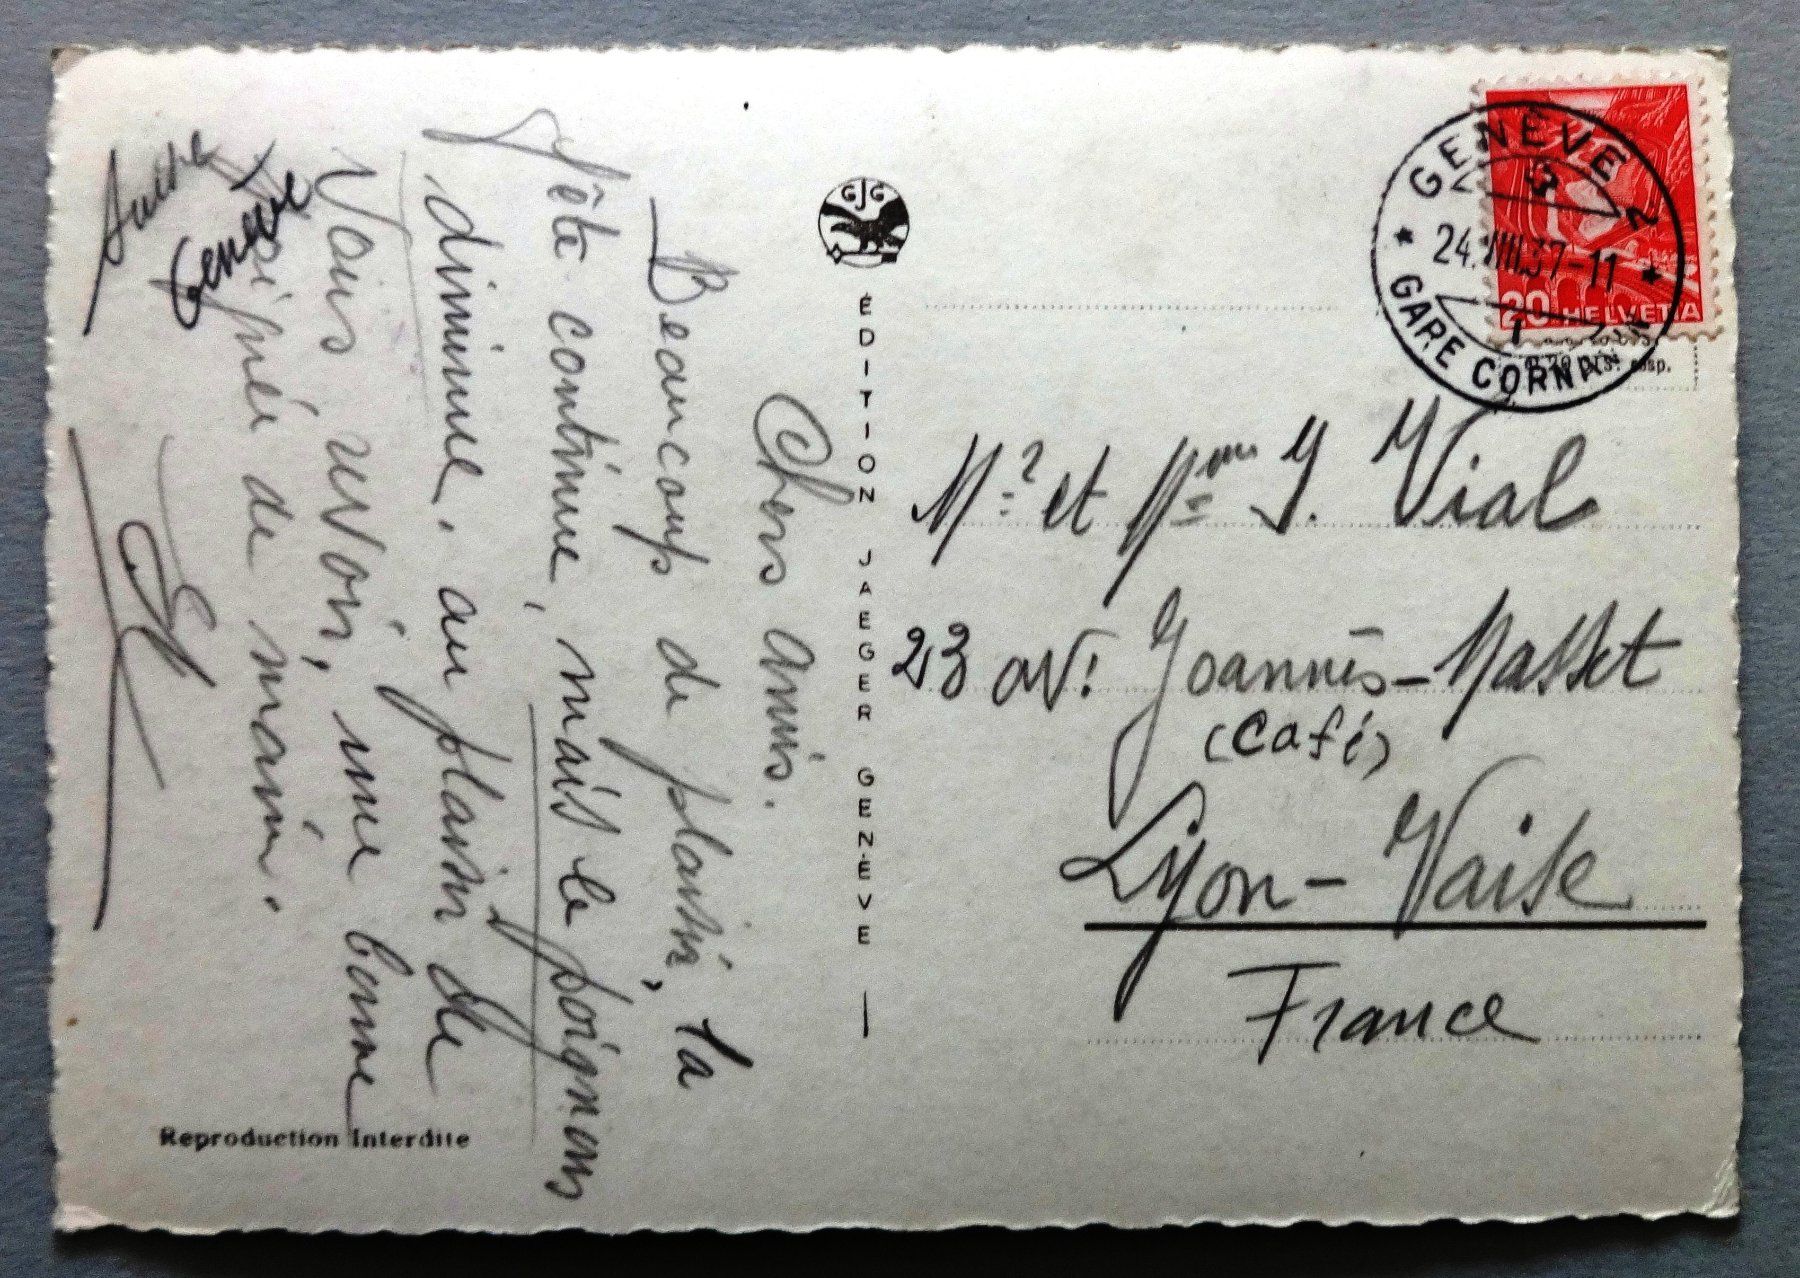 Chers amis.
Beaucoup de plaisir, la
fête continue, mais le poignon
diminue, au plaisir de
Vous revoir, une bonne
poignée de main.
Suisse
Genève
GJG
ÉDITION JAEGER GENÈVE
Reproduction Interdite
GENÈVE 2
24.VIII.37-11
GARE CORNAVIN
20 HELVETIA
Mr et Mme J. Vial
23 av. Joannès-Masset
(Café)
Lyon-Vaise
France